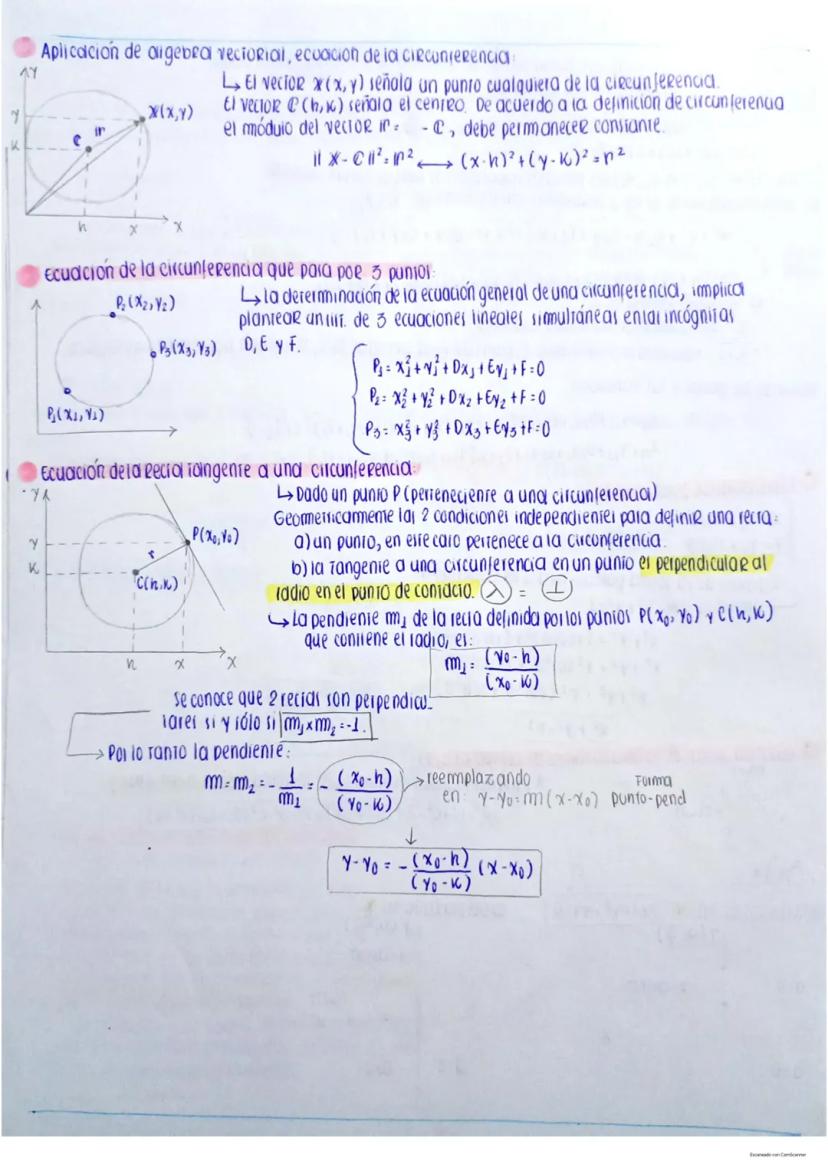 Aplicación de algebra vectorial, ecuación de la circunferencia:
↳ El vector X(x,y) señala un punto cualquiera de la circunferencia.
El vector C(h,k) señala el centro. De acuerdo a la definición de circunferencia
el módulo del vector r = - C, debe permanecer constante.
|| X - C ||² = r² ⟷ (x-h)² + (y-k)² = r²
y
y
k
C
r
X(x,y)
h
x
x
Ecuación de la circunferencia que pasa por 3 puntos:
↳ la determinación de la ecuación general de una circunferencia, implica
plantear un sist. de 3 ecuaciones lineales simultáneas en las incógnitas
D, E y F.
P₁ = x₁² + y₁² + Dx₁ + Ey₁ + F = 0
P₂ = x₂² + y₂² + Dx₂ + Ey₂ + F = 0
P₃ = x₃² + y₃² + Dx₃ + Ey₃ + F = 0
P₂(x₂, y₂)
P₃(x₃, y₃)
P₁(x₁, y₁)
Ecuación de la Recta Tangente a una circunferencia:
↳ Dado un punto P (perteneciente a una circunferencia)
Geometricamente las 2 condiciones independientes para definir una recta:
a) un punto, en este caso pertenece a la circonferencia.
b) la tangente a una circunferencia en un punto es perpendicular al
radio en el punto de contacto. ⅄ = ⊥
y
y
k
r
P(x₀, y₀)
C(h, k)
h
x
x
↳ La pendiente m₁ de la recta definida por los puntos P(x₀, y₀) y C(h, k)
que contiene el radio, es:
m₁ = (y₀ - h) / (x₀ - k)
Se conoce que 2 rectas son perpendicu-
lares si y sólo si m₁ x m₂ = -1.
→ Por lo tanto la pendiente:
m = m₂ = - 1/m₁ = - (x₀ - h) / (y₀ - k) → reemplazando
en: y - y₀ = m(x - x₀) Forma punto-pend
↓
y - y₀ = - (x₀ - h) / (y₀ - k) (x - x₀)
Escaneado con CamScanner